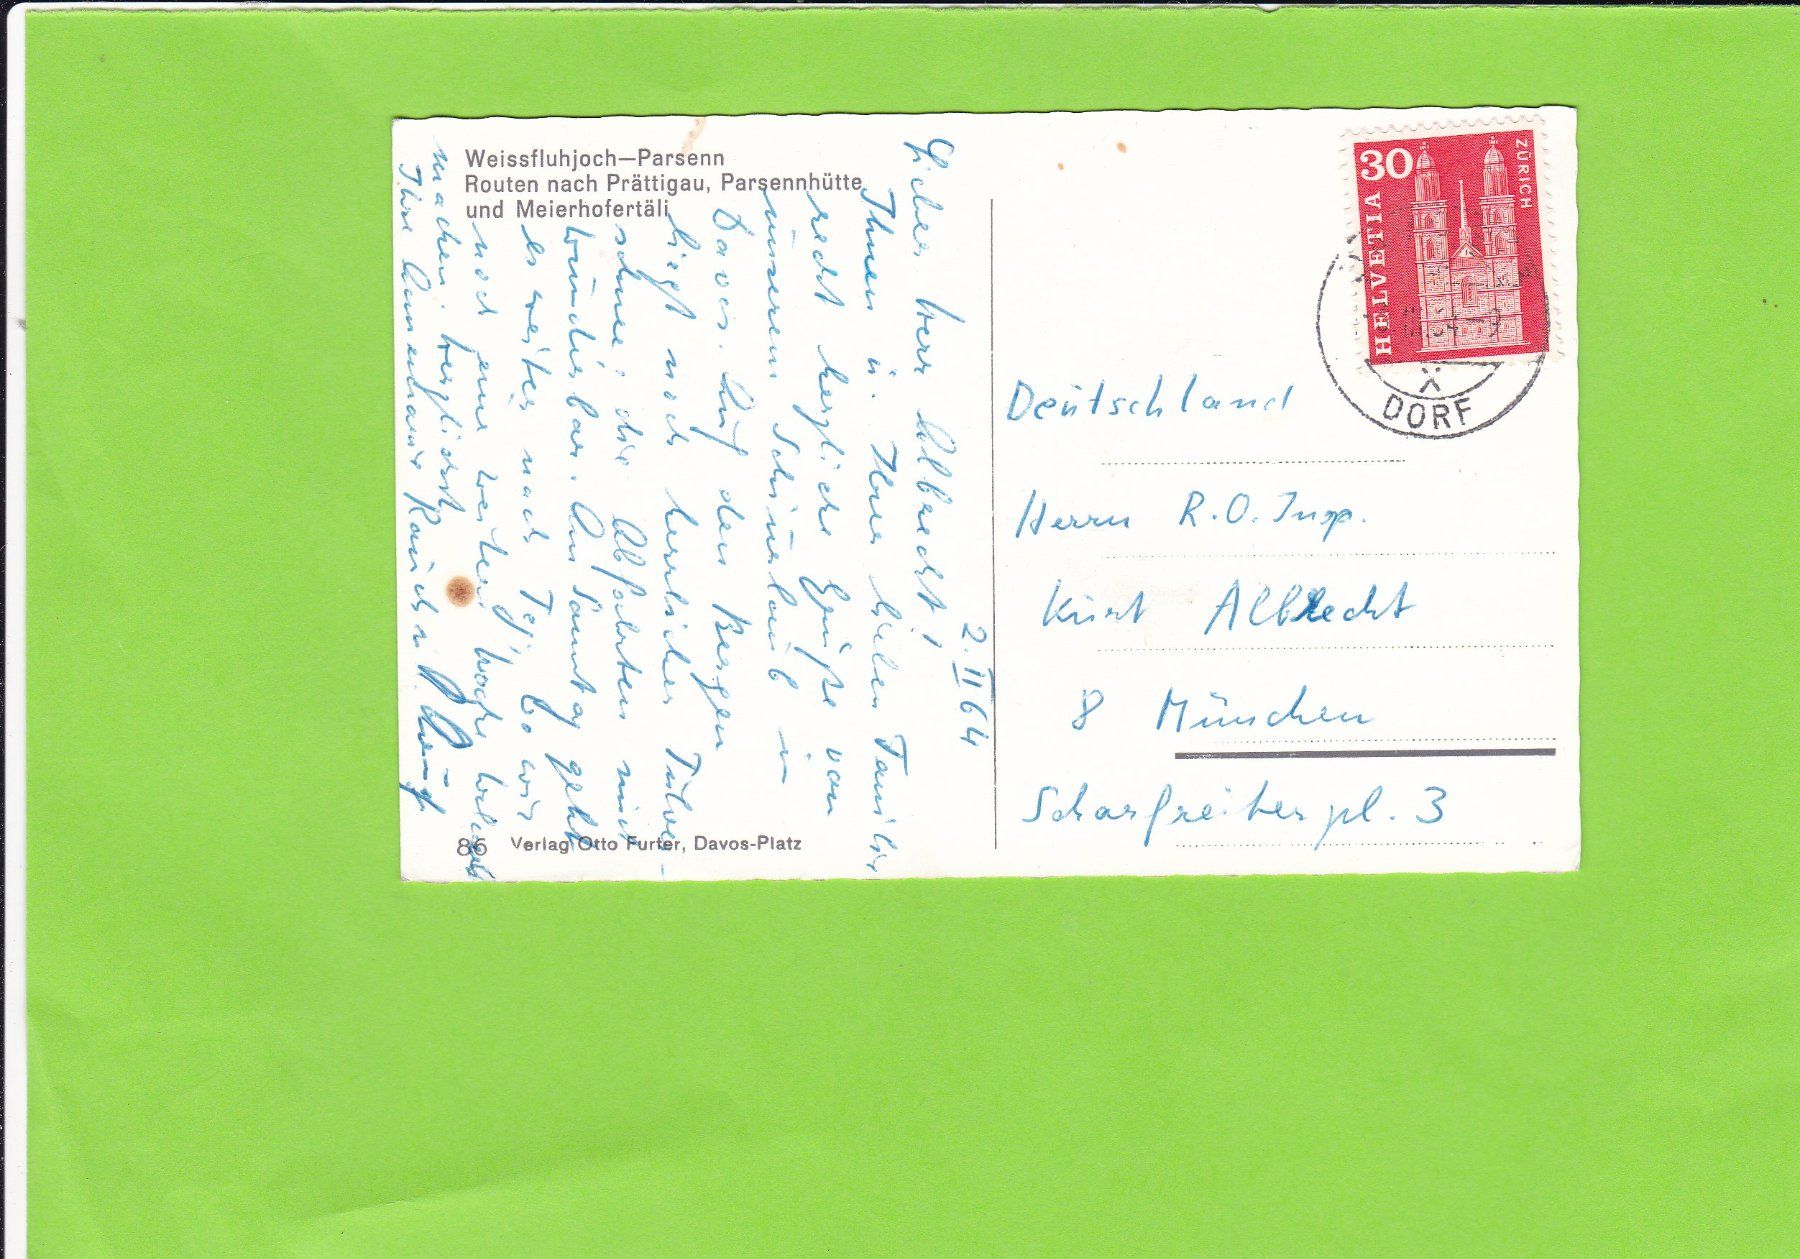 Weissfluhjoch—Parsenn
Routen nach Prättigau, Parsennhütte
und Meierhofertäli
2. II 64
Lieber Herr Albrecht!
Ihnen u. Ihrer lieben Familie
recht herzliche Grüße von
unserem Schiurlaub in
Davos. Auf den Bergen
liegt noch herrlicher Pulver-
schnee, die Abfahrten sind
wunderbar. Am Samstag geht
es weiter nach wo wir
noch eine weitere Woche Urlaub
machen. Herzlichst
Ihre Annemarie
86 Verlag Otto Furter, Davos-Platz
30
HELVETIA
ZÜRICH
DORF
Deutschland
Herrn R. O. Insp.
Kurt Albrecht
8 München
Scharfreiterpl. 3